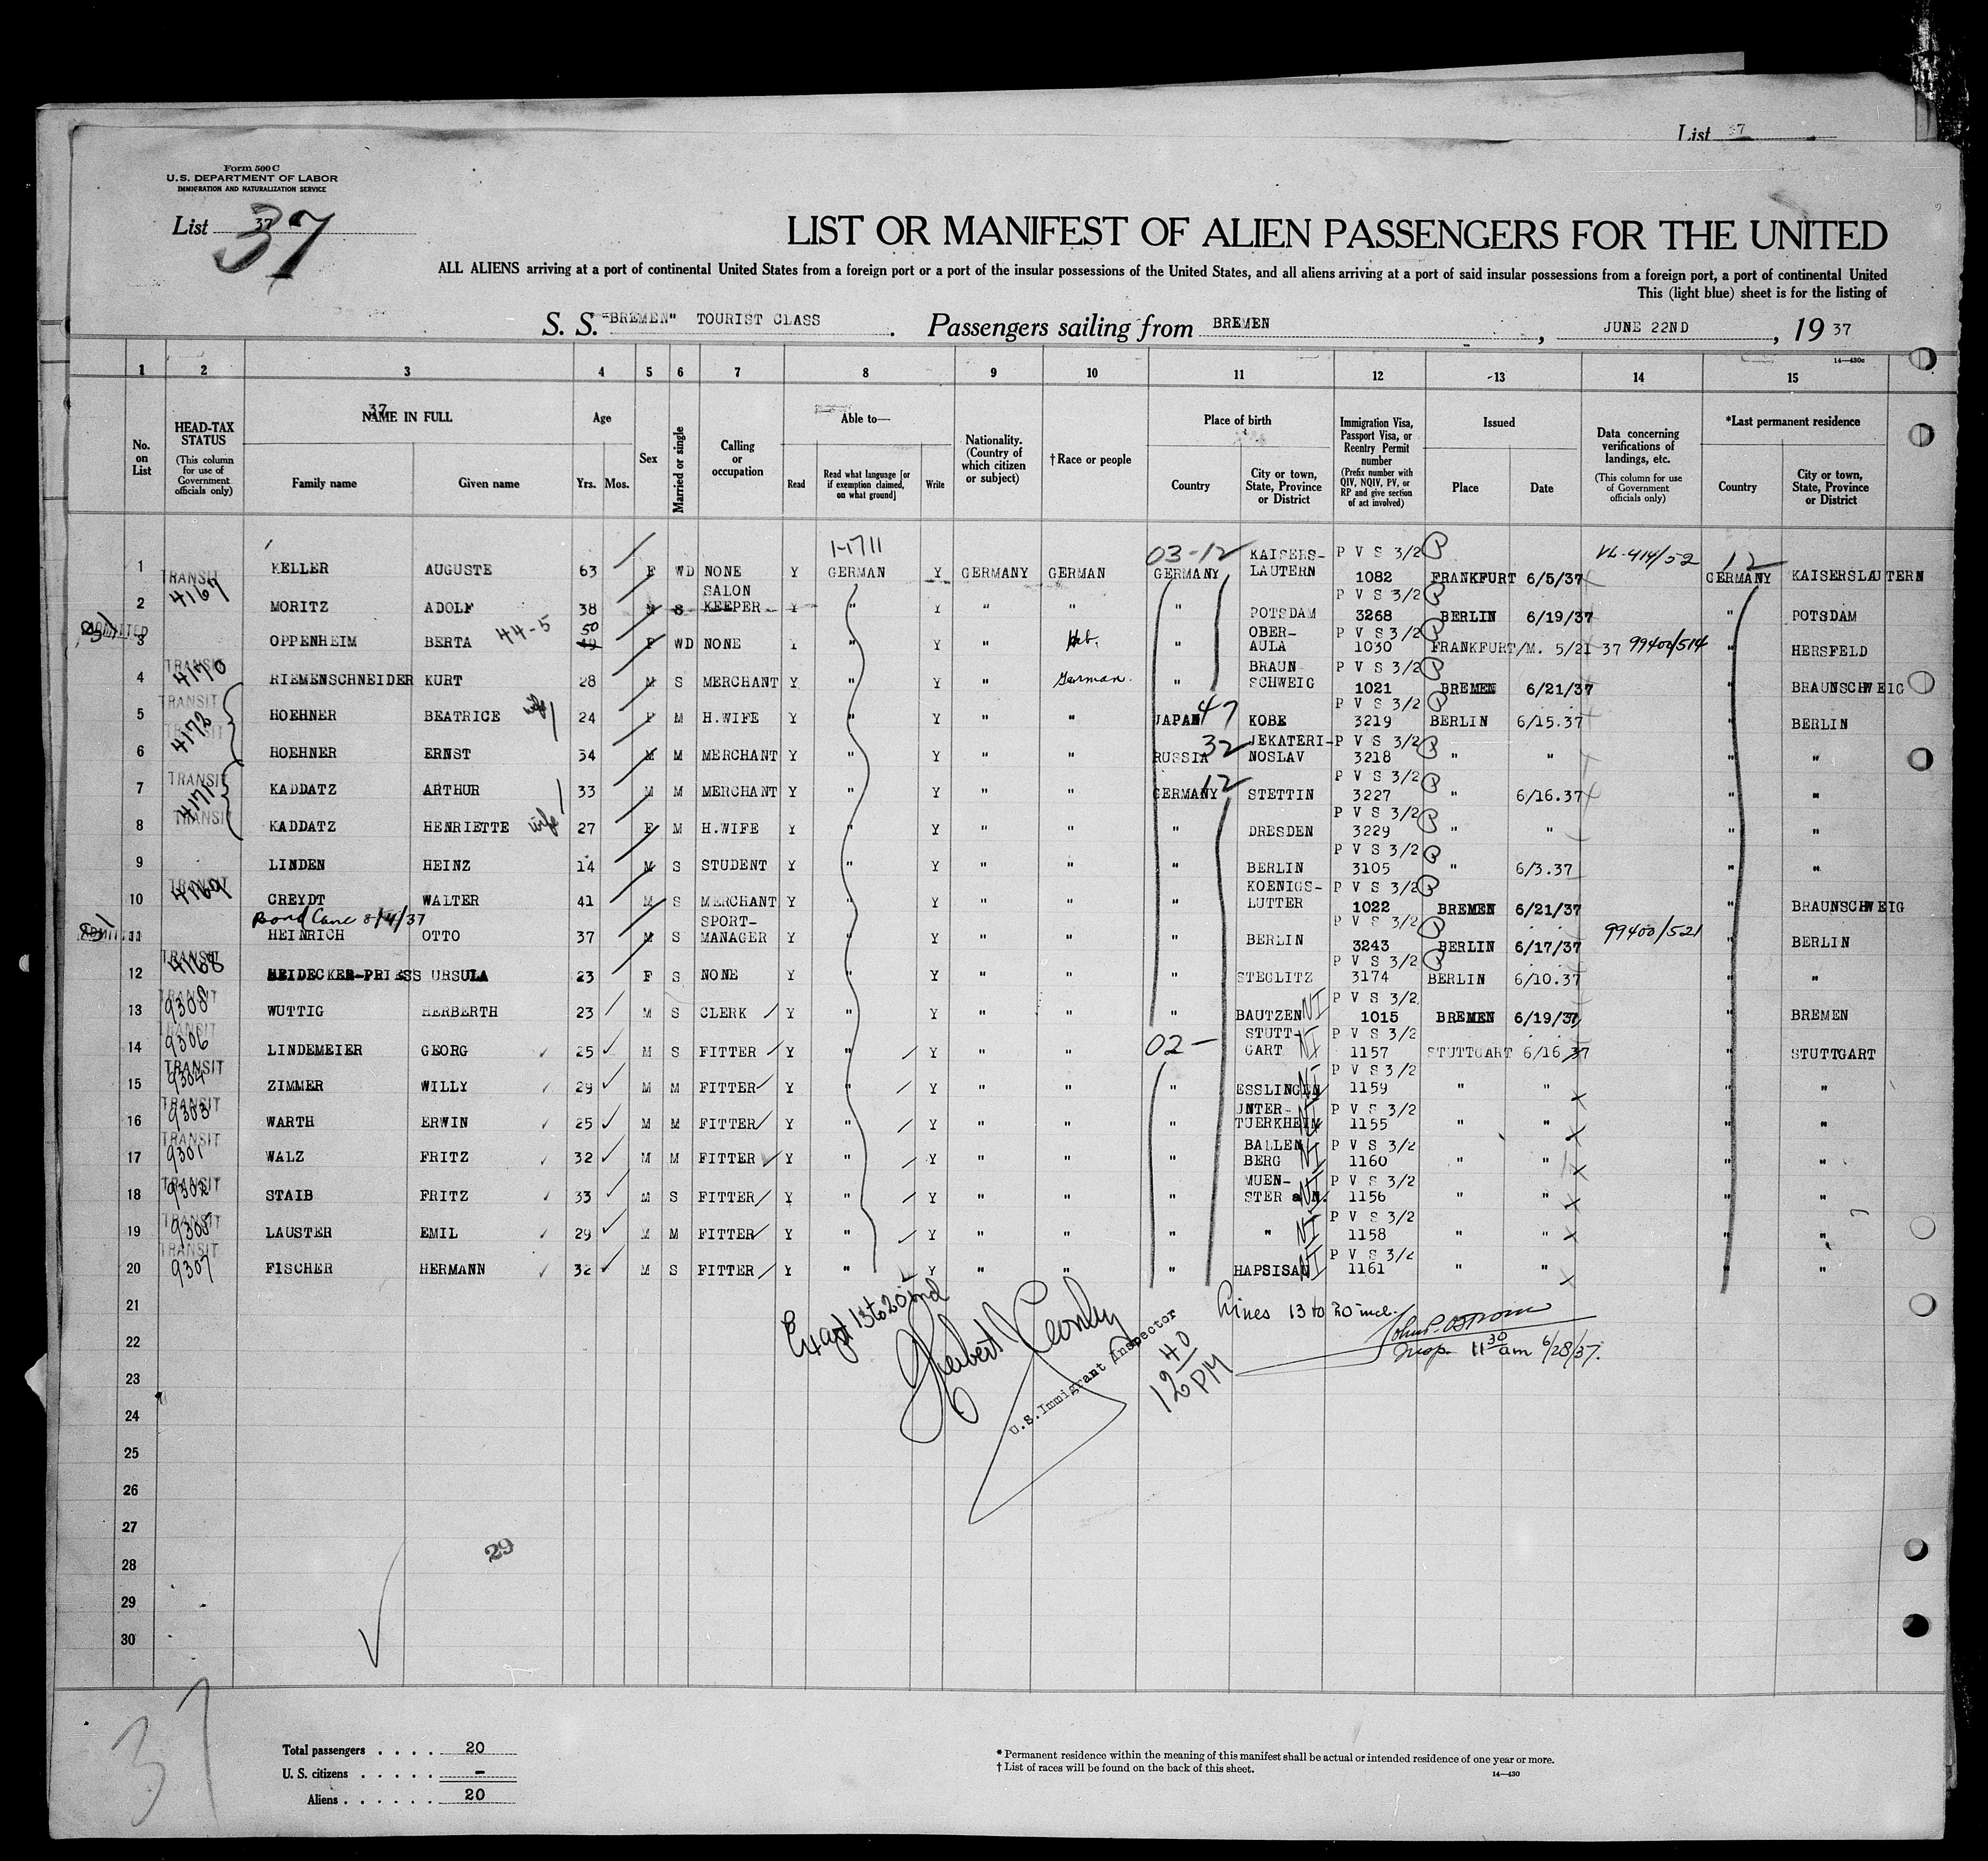 List 37
Form 500 C
U.S. DEPARTMENT OF LABOR
IMMIGRATION AND NATURALIZATION SERVICE
List 37
37
LIST OR MANIFEST OF ALIEN PASSENGERS FOR THE UNITED
ALL ALIENS arriving at a port of continental United States from a foreign port or a port of the insular possessions of the United States, and all aliens arriving at a port of said insular possessions from a foreign port, a port of continental United
This (light blue) sheet is for the listing of
S. S. "BREMEN" TOURIST CLASS . Passengers sailing from BREMEN , JUNE 22ND , 19 37
14—430c
1 2 3 4 5 6 7 8 9 10 11 12 13 14 15
No. on List
HEAD-TAX STATUS (This column for use of Government officials only)
37
NAME IN FULL
Family name Given name
Age Yrs. Mos.
Sex
Married or single
Calling or occupation
Able to— Read Read what language [or if exemption claimed, on what ground] Write
Nationality. (Country of which citizen or subject)
†Race or people
Place of birth Country City or town, State, Province or District
Immigration Visa, Passport Visa, or Reentry Permit number (Prefix number with QIV, NQIV, PV, or RP and give section of act involved)
Issued Place Date
Data concerning verifications of landings, etc. (This column for use of Government officials only)
*Last permanent residence Country City or town, State, Province or District
1-1711 03-12 VL-414/52 12
1 KELLER AUGUSTE 63 F WD NONE Y GERMAN Y GERMANY GERMAN GERMANY KAISERS-LAUTERN P V S 3/2 1082 FRANKFURT 6/5/37 GERMANY KAISERSLAUTERN
TRANSIT 4167
2 MORITZ ADOLF 38 M S SALON KEEPER Y " Y " " " POTSDAM P V S 3/2 3268 BERLIN 6/19/37 " POTSDAM
ADMITTED
3 OPPENHEIM BERTA 44-5 50 49 F WD NONE Y " Y " Heb. " OBER-AULA P V S 3/2 1030 FRANKFURT/M. 5/21 37 99400/514 " HERSFELD
TRANSIT 4170
4 RIEMENSCHNEIDER KURT 28 M S MERCHANT Y " Y " German. " BRAUN SCHWEIG P V S 3/2 1021 BREMEN 6/21/37 " BRAUNSCHWEIG
TRANSIT
5 HOEHNER BEATRICE wife 24 F M H.WIFE Y " Y " " JAPAN 47 KOBE P V S 3/2 3219 BERLIN 6/15.37 " BERLIN
TRANSIT 4172
6 HOEHNER ERNST 34 M M MERCHANT Y " Y " " RUSSIA 32 JEKATERI-NOSLAV P V S 3/2 3218 " " " "
TRANSIT 4171
7 KADDATZ ARTHUR 33 M M MERCHANT Y " Y " " GERMANY 12 STETTIN P V S 3/2 3227 " 6/16.37 " "
TRANSIT
8 KADDATZ HENRIETTE wife 27 F M H.WIFE Y " Y " " " DRESDEN P V S 3/2 3229 " " " "
9 LINDEN HEINZ 14 M S STUDENT Y " Y " " " BERLIN P V S 3/2 3105 " 6/3.37 " "
TRANSIT 4169
10 CREYDT WALTER 41 M S MERCHANT Y " Y " " " KOENIGS-LUTTER P V S 3/2 1022 BREMEN 6/21/37 " BRAUNSCHWEIG
Bond Canc 8/4/37
11 HEINRICH OTTO 37 M S SPORT-MANAGER Y " Y " " " BERLIN P V S 3/2 3243 BERLIN 6/17/37 99400/521 " BERLIN
TRANSIT 4168
12 HEIDECKER-PRIESS URSULA 23 F S NONE Y " Y " " " STEGLITZ P V S 3/2 3174 BERLIN 6/10.37 " "
TRANSIT 9308
13 WUTTIG HERBERTH 23 M S CLERK Y " Y " " " BAUTZEN NI P V S 3/2 1015 BREMEN 6/19/37 " BREMEN
TRANSIT 9306
14 LINDEMEIER GEORG 25 M S FITTER Y " Y " " 02- STUTT-GART NI P V S 3/2 1157 STUTTGART 6/16.37 " STUTTGART
TRANSIT 9304
15 ZIMMER WILLY 29 M M FITTER Y " Y " " " ESSLINGEN NI P V S 3/2 1159 " " " "
TRANSIT 9303
16 WARTH ERWIN 25 M M FITTER Y " Y " " " UNTER-TUERKHEIM NI P V S 3/2 1155 " " " "
TRANSIT 9301
17 WALZ FRITZ 32 M M FITTER Y " Y " " " BALLEN BERG NI P V S 3/2 1160 " " " "
TRANSIT 9302
18 STAIB FRITZ 33 M S FITTER Y " Y " " " MUEN-STER a N. NI P V S 3/2 1156 " " " "
TRANSIT 9305
19 LAUSTER EMIL 29 M M FITTER Y " Y " " " " NI P V S 3/2 1158 " " " "
TRANSIT 9307
20 FISCHER HERMANN 32 M S FITTER Y " Y " " " HAPSISAU NI P V S 3/2 1161 " " " "
21
22
23
24
25
26
27
28
29
30
Except 13 to 20 incl
U.S. Immigrant Inspector
12 40 PM
Lines 13 to 20 incl.
Insp. 11 30 am 6/28/37.
29
37
Total passengers . . . . 20
U. S. citizens . . . . . –
Aliens . . . . . . 20
* Permanent residence within the meaning of this manifest shall be actual or intended residence of one year or more.
† List of races will be found on the back of this sheet.
14—430